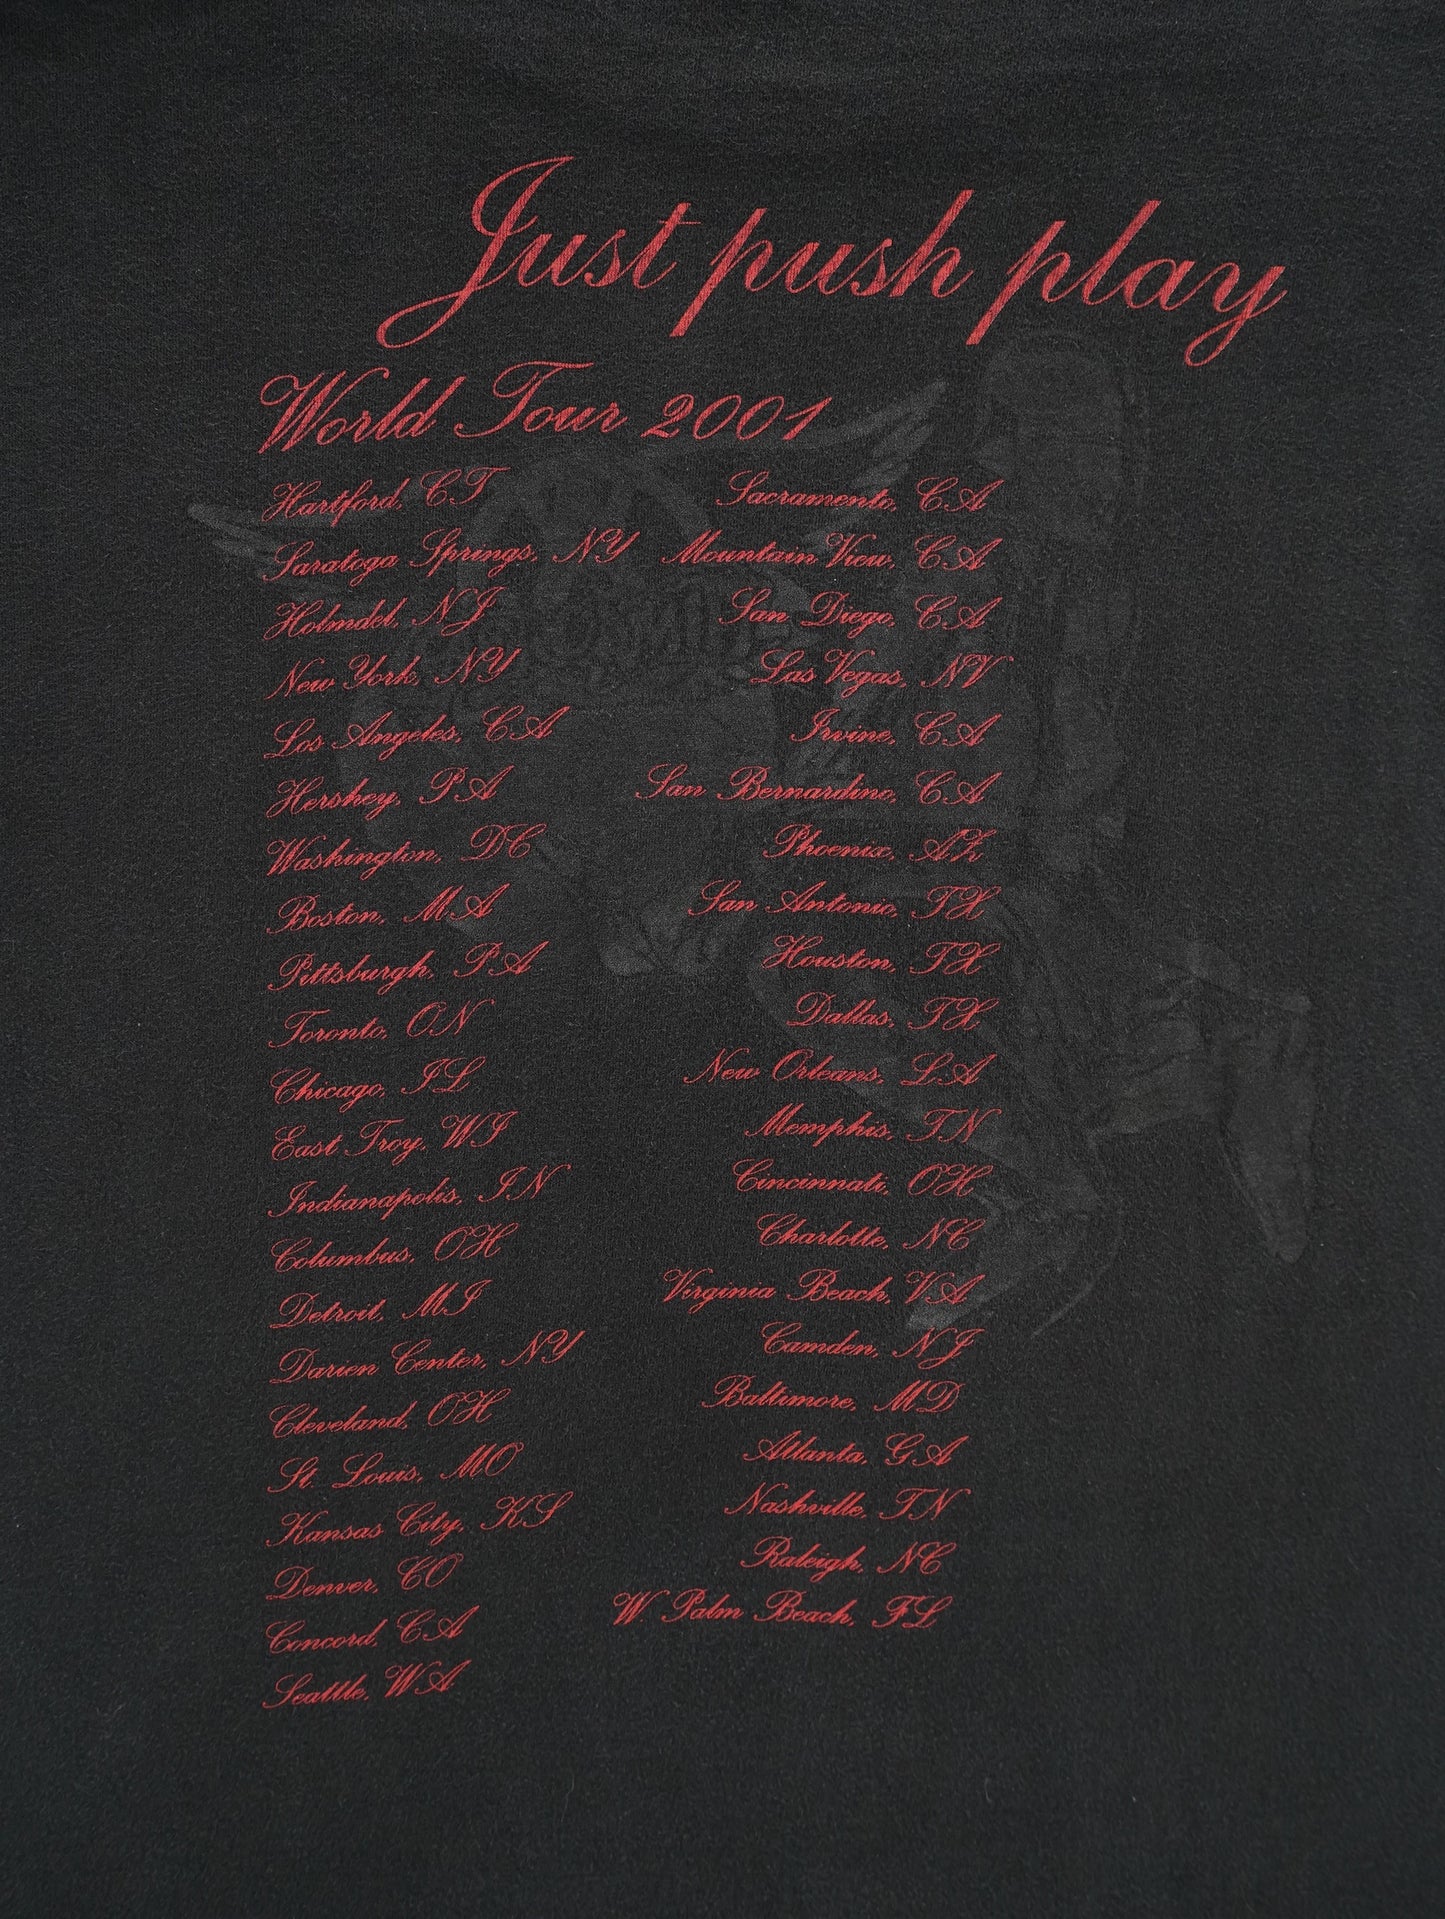 Just push play
World Tour 2001
Hartford, CT
Saratoga Springs, NY
Holmdel, NJ
New York, NY
Los Angeles, CA
Hershey, PA
Washington, DC
Boston, MA
Pittsburgh, PA
Toronto, ON
Chicago, IL
East Troy, WI
Indianapolis, IN
Columbus, OH
Detroit, MI
Darien Center, NY
Cleveland, OH
St. Louis, MO
Kansas City, KS
Denver, CO
Concord, CA
Seattle, WA
Sacramento, CA
Mountain View, CA
San Diego, CA
Las Vegas, NV
Irvine, CA
San Bernardino, CA
Phoenix, AZ
San Antonio, TX
Houston, TX
Dallas, TX
New Orleans, LA
Memphis, TN
Cincinnati, OH
Charlotte, NC
Virginia Beach, VA
Camden, NJ
Baltimore, MD
Atlanta, GA
Nashville, TN
Raleigh, NC
W Palm Beach, FL